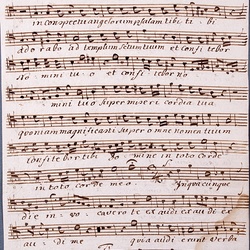 in conspectu angelorum psalam tibi ti bi
Ado rabo ad templum sctum tuum et confi tebor
No mini tu o et confi tebor no
mini tuo super miseri cordia tua
quoniam magnificasti super omne nomen tuum
Confitebor tibi Do mine in toto corde
in toto corde me o. In quacunque
die in vo cavero te ex audi ex au di e
au di me quia audi e runt verba